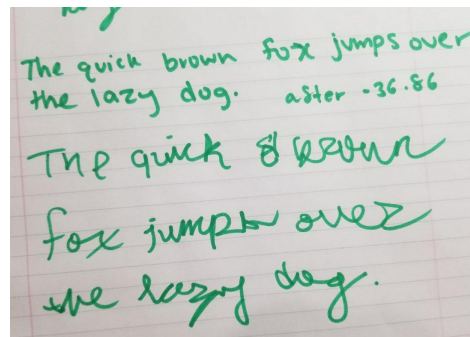 The quick brown fox jumps over
the lazy dog. after -36.86
The quick brown
fox jumps over
the lazy dog.